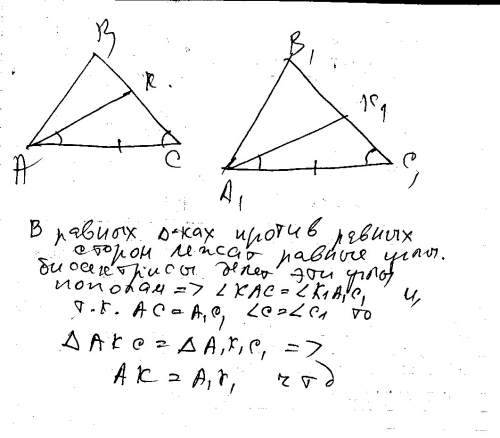 B B₁
K. K₁
A C A₁ C₁
В равных Δ-ках против равных
сторон лежат равные углы.
биссектрисы делят эти углы
пополам => ∠KAC=∠K₁A₁C₁ и,
т.к. AC=A₁C₁ ∠C=∠C₁ то
ΔAKC=ΔA₁K₁C₁ =>
AK=A₁K₁ чтд